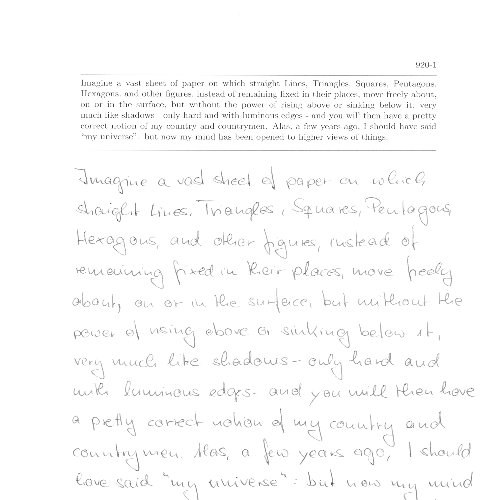 920-1
Imagine a vast sheet of paper on which straight Lines, Triangles, Squares, Pentagons,
Hexagons, and other figures, instead of remaining fixed in their places, move freely about,
on or in the surface, but without the power of rising above or sinking below it, very
much like shadows - only hard and with luminous edges - and you will then have a pretty
correct notion of my country and countrymen. Alas, a few years ago, I should have said
"my universe": but now my mind has been opened to higher views of things.
Imagine a vast sheet of paper on which
straight Lines, Triangles, Squares, Pentagons,
Hexagons, and other figures, instead of
remaining fixed in their places, move freely
about, on or in the surface, but without the
power of rising above or sinking below it,
very much like shadows - only hard and
with luminous edges - and you will then have
a pretty correct notion of my country and
countrymen. Alas, a few years ago, I should
have said "my universe": but now my mind